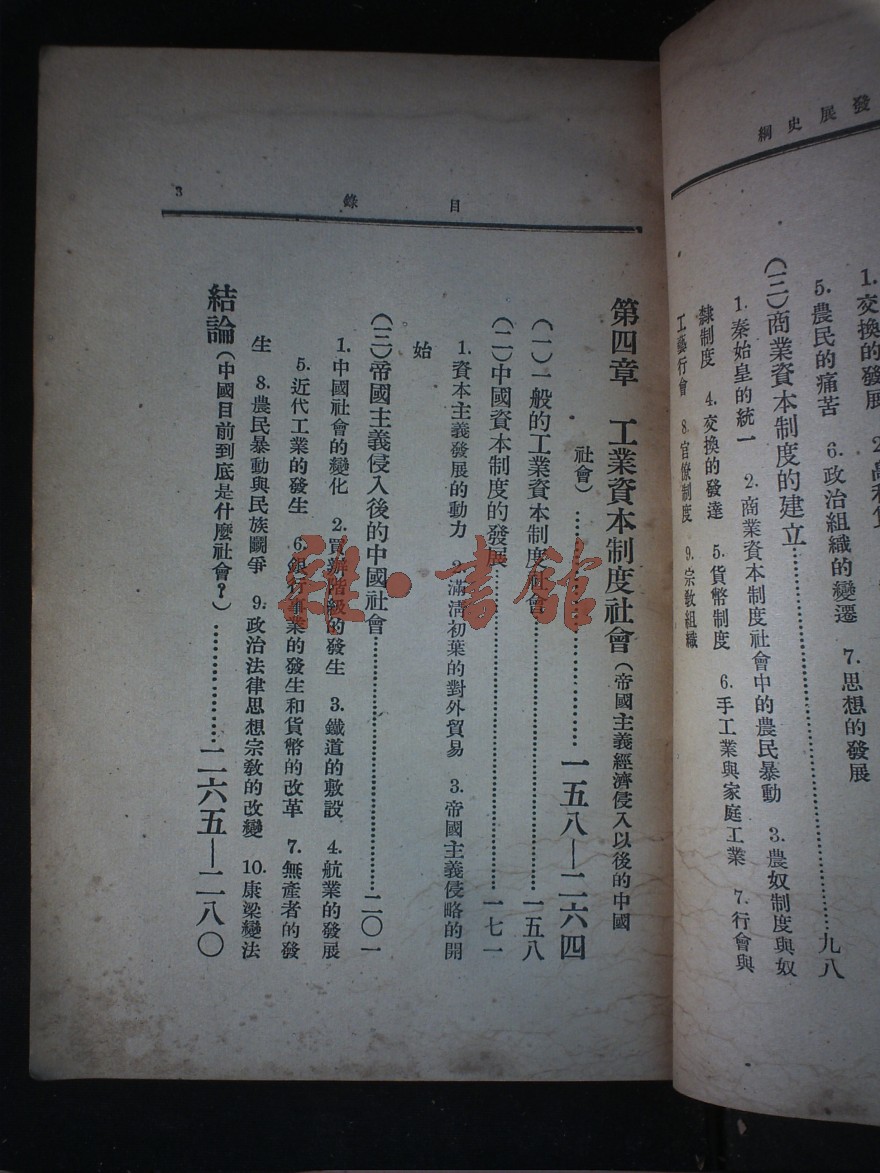 發展史綱
1. 交換的發展
5. 農民的痛苦 6. 政治組織的變遷 7. 思想的發展
(三)商業資本制度的建立……九八
1. 秦始皇的統一 2. 商業資本制度社會中的農民暴動 3. 農奴制度與奴
隸制度 4. 交換的發達 5. 貨幣制度 6. 手工業與家庭工業 7. 行會與
工藝行會 8. 官僚制度 9. 宗教組織
目錄
3
第四章 工業資本制度社會(帝國主義經濟侵入以後的中國
社會)……一五八—二六四
(一)一般的工業資本制度社會……一五八
(二)中國資本制度的發展……一七一
1. 資本主義發展的動力 2. 滿清初葉的對外貿易 3. 帝國主義侵略的開
始
(三)帝國主義侵入後的中國社會……二〇一
1. 中國社會的變化 2. 買辦階級的發生 3. 鐵道的敷設 4. 航業的發展
5. 近代工業的發生 6. 銀行事業的發生和貨幣的改革 7. 無產者的發
生 8. 農民暴動與民族鬭爭 9. 政治法律思想宗教的改變 10. 康梁變法
結論(中國目前到底是什麼社會?)……二六五—二八〇
雜·書館